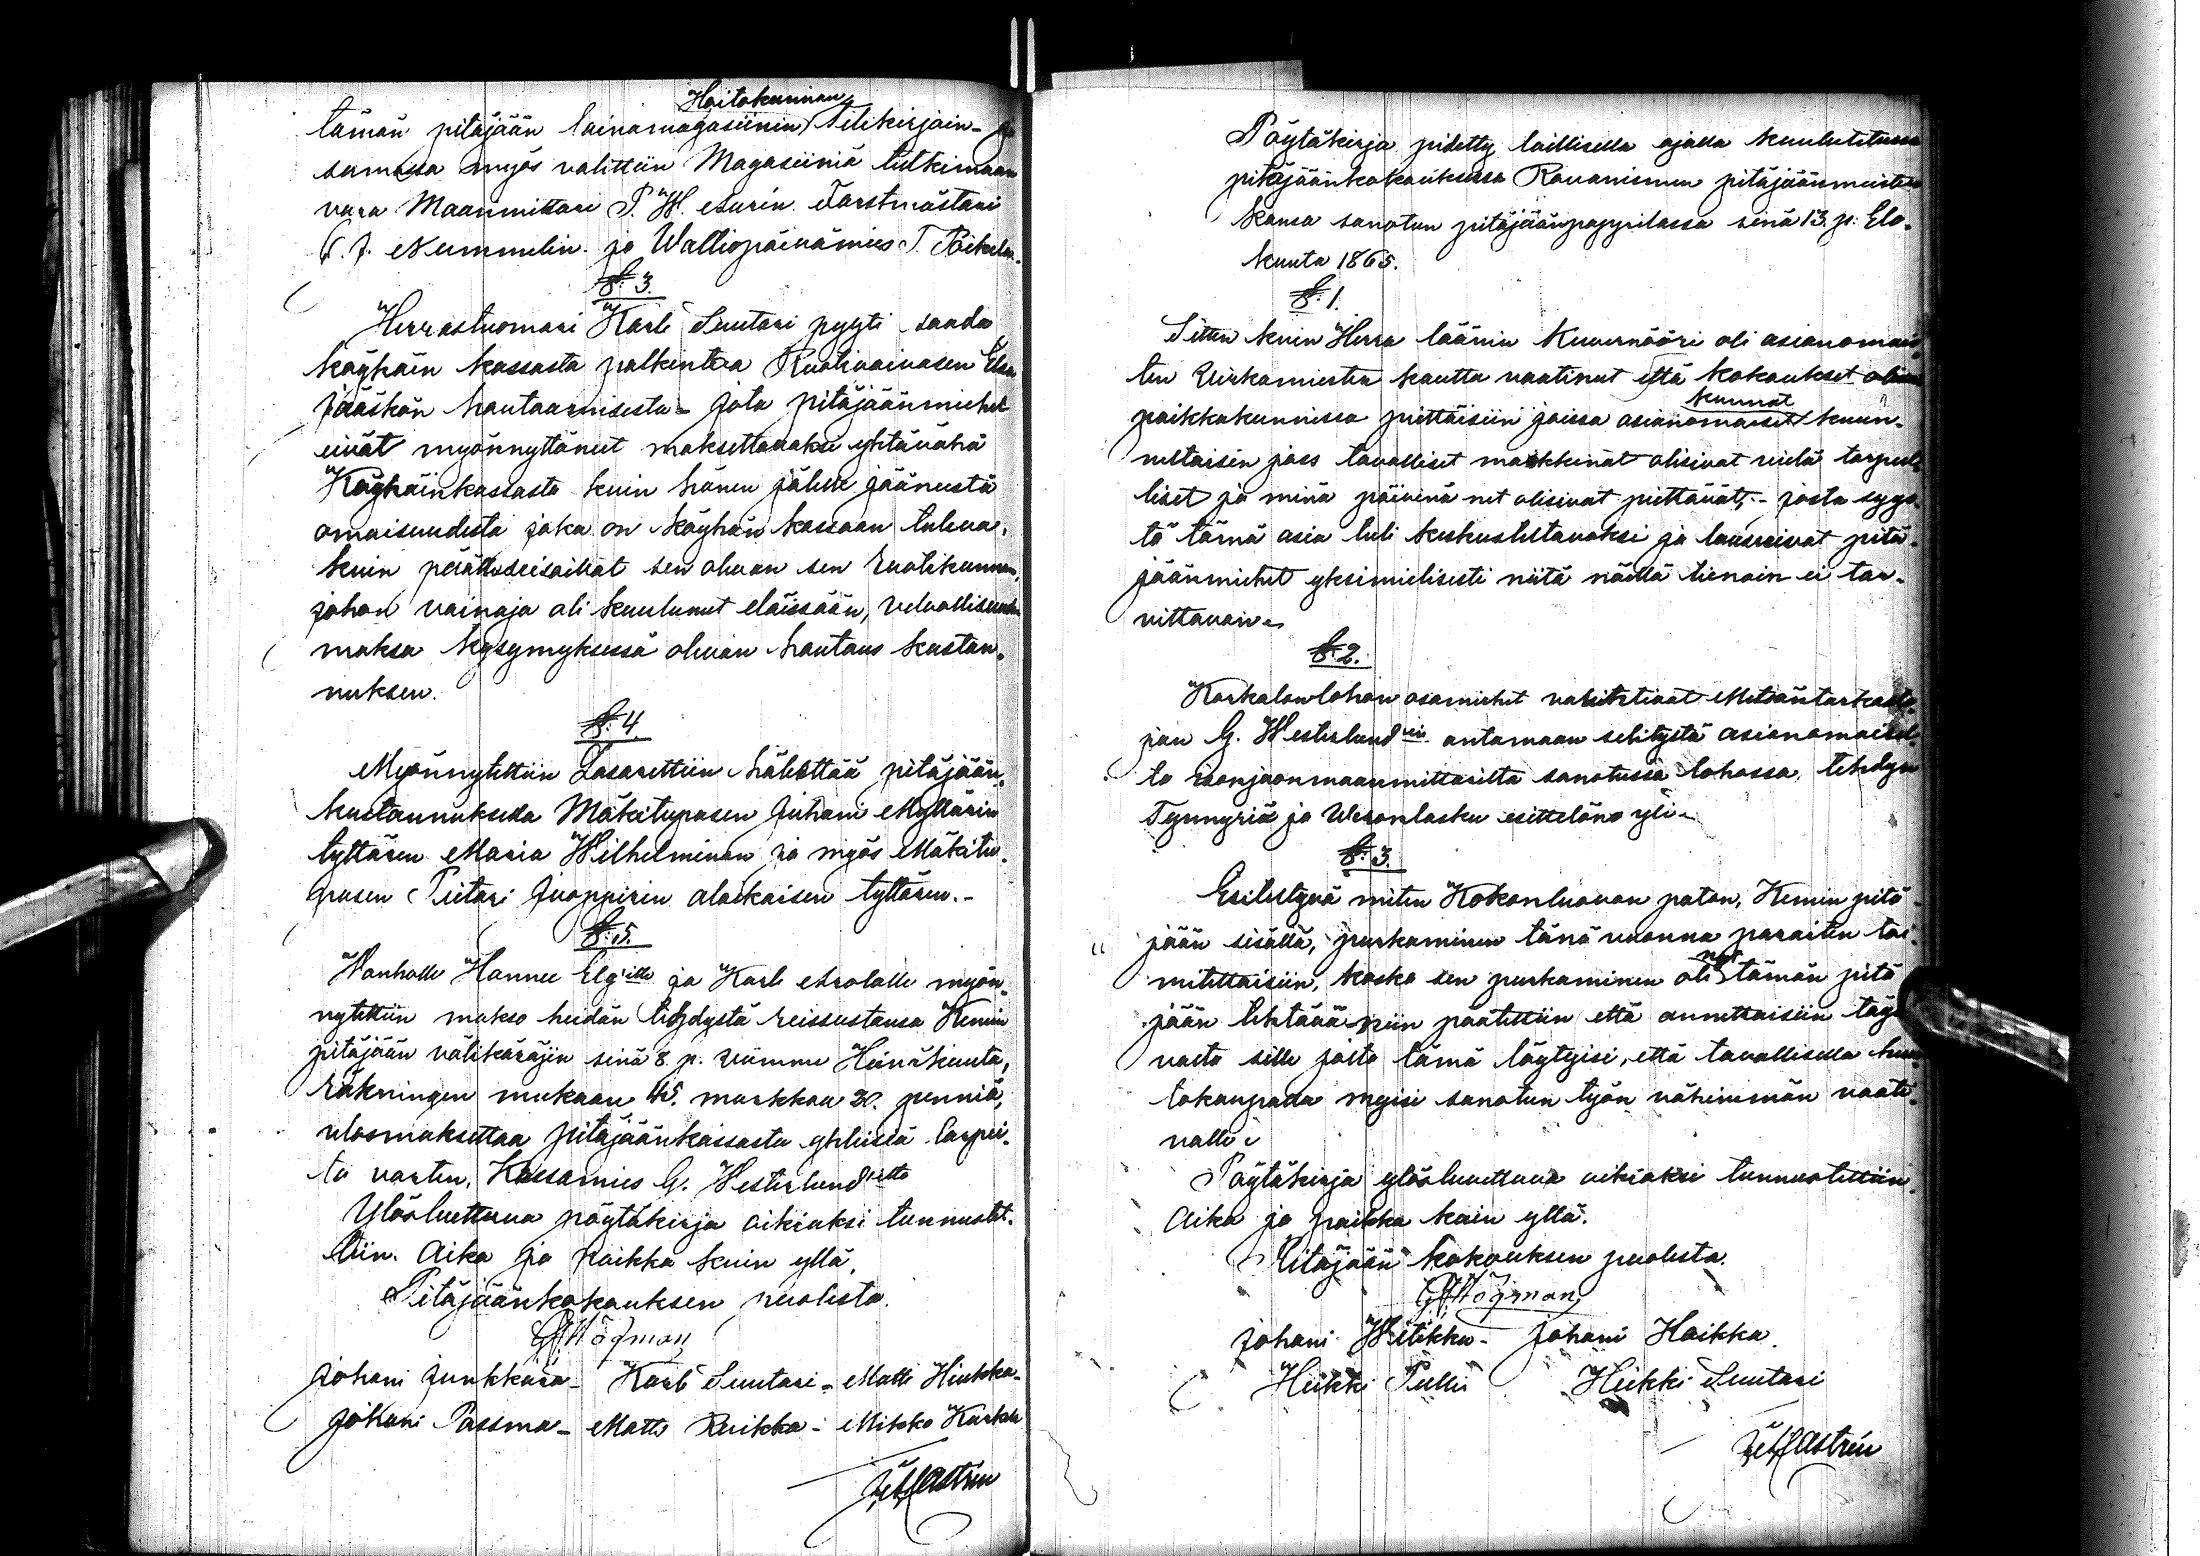 Hoitokunnan
tämän pitäjään lainamagasiinin Tilikirjain- ja
samassa myös valittiin Magasiiniä tutkimaan
vara Maanmittari P. W. Aurin. Forstmästari
C. J. Nummelin ja Walliopäivämies T. Poikela.
§. 3.
Herrastuomari Karli Suutari pyyti saada
köyhäin kassasta palkintoa Ruotivaivasen Elsa
Jääskön hautaamisesta - Jota pitäjäänmiehet
eivät myönnyttäneet maksettavaksi yhtävähä
Köyhäinkassasta kuin hänen jälkeen jääneestä
omaisuudesta joka on köyhäin kassaan tuleva,
kuin perättseisoivat sen olevan sen Ruotikunnan,
johon vainaja oli kuulunut eläissään, velvollisuus
maksa kysymyksessä olevan hautaus kustan-
nuksen.
§. 4.
Myönnytettiin Lasarettiin lähettää pitäjään
kustannuksella Mäkitupasen Juhani Myllärin
tyttären Maria Wilhelminan ja myös Mäkitu-
pasen Pietari Juopperin alaikaisen tyttären.-
§. 5.
Wanhalle Hannu Elg'ille ja Karli Arolalle myön-
nytettiin makso heidän tehdystä reissustansa Kemin
pitäjään välikäräjiin sinä 8 p. viimme Heinäkuuta,
räkningen mukaan 45. markkaa 20. penniä,
ulosmaksettaa pitäjäänkassasta yhteisiä tarpei-
ta varten, Kassamies G. Westerlund'ilta
Ylösluettuna pöytäkirja oikiaksi tunnustet-
tiin. Aika ja Paikka kuin yllä,
Pitäjäänkokouksen puolesta.
G. Högman
Johani Junkkara - Karli Suutari - Matti Hiukka-
Johani Passma - Matti Ruikka - Mikko Karhu
Castrén
Pöytäkirja pidetty laillisella ajalla kuulutetussa
pitäjäänkokouksessa Rovaniemen pitäjäänmiesten
kansa sanotun pitäjäänpappilassa sinä 13. p. Elo-
kuuta 1865.
§. 1.
Sitten kuin Herra läänin Kuvernööri oli asianomais-
ten Virkamiesten kautta vaatinut että kokoukset
paikkakunnissa pittäisiin joissa asianomaiset kunnat kuun-
neltaisin jos tavalliset markkinat olisivat vielä tarpeel-
liset ja minä päivinä net olisivat pittävät; - josta syys-
tä tämä asia tuli keskusteltavaksi ja lausuivat pitä-
jäänmiehet yksimielisesti niitä näillä tienoin ei tar-
vittavan.
§. 2.
Korkalonlohon osamiehet vahvistivat Metsäntarkasta-
jan G. Westerlund'in antamaan selitystä asianomaisel-
ta isonjaonmaanmittarilta sanotussa lohossa, tehdyn
Tynnyriä ja Weronlasku esittelön yli.
§. 3.
Esitestynä miten Kokonluovan patan, Kemin pitä-
jään sisällä, purkaminen tänä vuonna paraiten toi-
mitettaisiin, koska sen purkaminen oli nyt tämän pitä
jään tehtävä niin päätettiin että annettaisiin täy-
valta sille josta tämä löytyisi, että tavallisella huu-
tokaupada myisi sanotun työn vähemmän vaati-
valle.
Pöytäkirja ylösluettuna oikiaksi tunnustettiin.
Aika ja paikka kuin yllä.
Pitäjään kokouksen puolesta.
G. Högman
Johani Witikka - Johani Haikka.
Heikki Pulli Heikki Suutari
Castrén